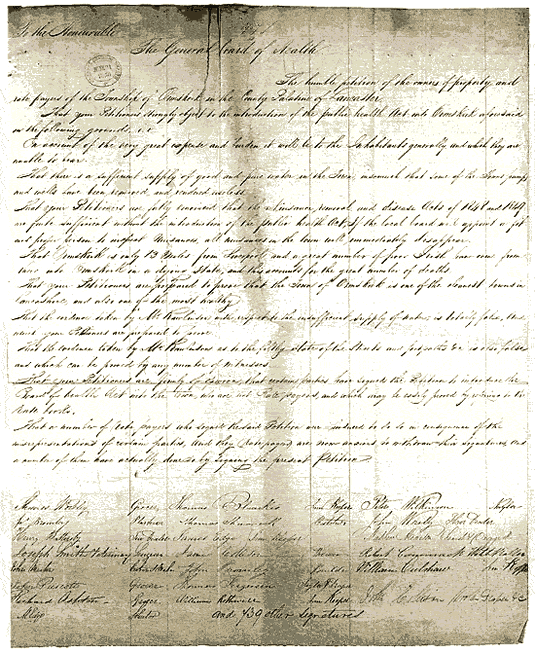 To the Honourable
The General board of Health
The humble petition of the owners of property and
rate payers of the Township of Ormskirk in the County Palatine of Lancaster.
That your Petitioners strongly object to the introduction of the public health Act into Ormskirk aforesaid
on the following grounds, i.e.
On account of the very great expense and burden it will be to the Inhabitants generally and which they are
unable to bear.
That there is a sufficient supply of good and pure water in the Town, insomuch that some of the Town pumps
and wells have been removed, and rendered useless.
That your Petitioners are fully convinced that the Nuisance removal and disease Acts of 1848 and 1849
are quite sufficient without the introduction of the public health Act, If the local board will appoint a fit
and proper person to inspect Nuisances, all nuisances in the town will immediately disappear.
That Ormskirk is only 13 Miles from Liverpool and a great number of poor Irish have come from
there into Ormskirk in a dying State, and this accounts for the great number of deaths
That your Petitioners are prepared to prove that the Town of Ormskirk is one of the cleanest towns in
Lancashire, and also one of the most healthy.
That the evidence taken by Mr Rawlinson with respect to the insufficient supply of water, is totally false, and
which your Petitioners are prepared to prove
That the evidence taken by Mr Rawlinson as to the filthy state of the Streets and is also false
and which can be proved by any number of witnesses
That your Petitioners are firmly of opinion that certain parties have signed the Petition to introduce the
Board of health Act into the Town, who are not Rate payers, and which may be easily proved by referring to the
Rate books.
That a number of rate payers who signed the said Petition were induced to do so in consequence of the
misrepresentations of certain parties, and they rate payers are now anxious to withdraw their signatures and
a number of them have actually done so by signing the present Petition
Thomas Grocer Thomas Inn Keeper Peter Wilkinson
Thomas John
Henry James Inn Keeper
Joseph Smith Veterinary Surgeon James Robert
John John Builder William Culshaw Inn Keeper
John Prescott Grocer Thomas
Richard Ashton Grocer William Inn Keeper John
and 739 other signatures